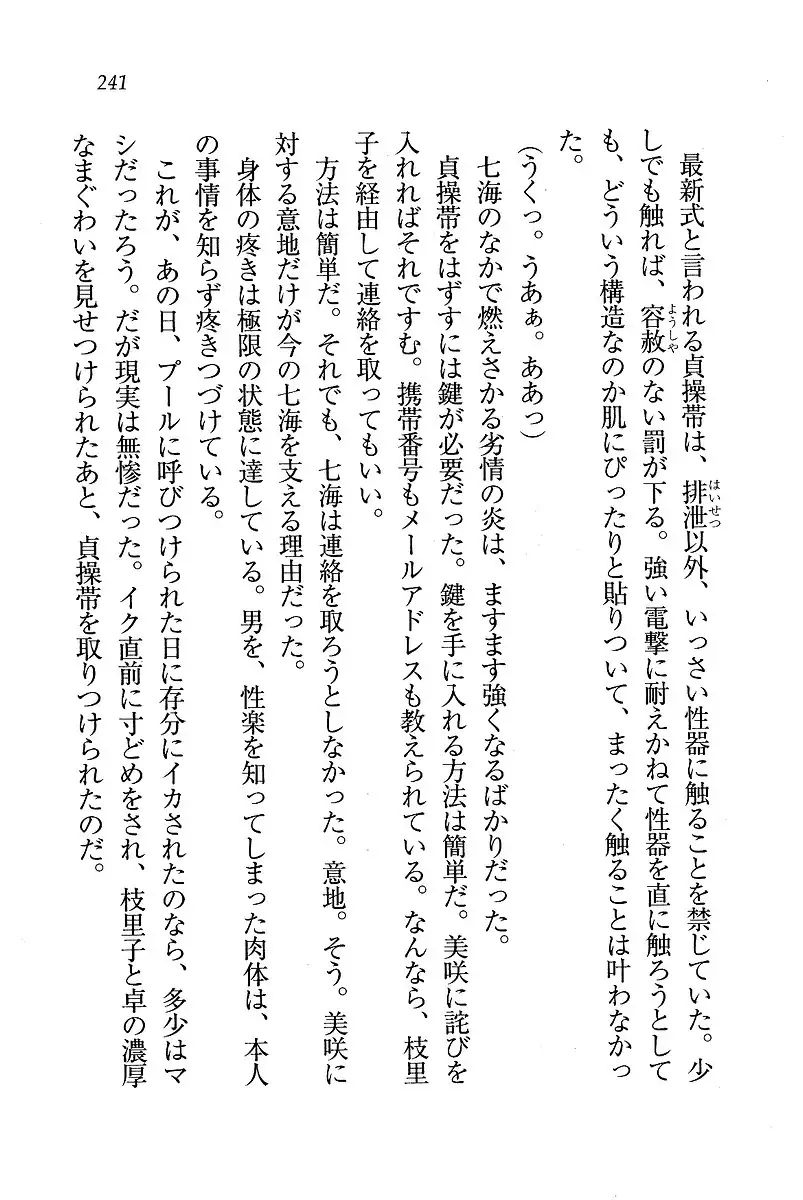 241
最新式と言われる貞操帯は、排泄以外、いっさい性器に触ることを禁じていた。少
はいせつ
しでも触れば、容赦のない罰が下る。強い電撃に耐えかねて性器を直に触ろうとして
ようしゃ
も、どういう構造なのか肌にぴったりと貼りついて、まったく触ることは叶わなかっ
た。
(うくっ。うあぁ。ああっ)
七海のなかで燃えさかる劣情の炎は、ますます強くなるばかりだった。
貞操帯をはずすには鍵が必要だった。鍵を手に入れる方法は簡単だ。美咲に詫びを
入れればそれですむ。携帯番号もメールアドレスも教えられている。なんなら、枝里
子を経由して連絡を取ってもいい。
方法は簡単だ。それでも、七海は連絡を取ろうとしなかった。意地。そう。美咲に
対する意地だけが今の七海を支える理由だった。
身体の疼きは極限の状態に達している。男を、性楽を知ってしまった肉体は、本人
の事情を知らず疼きつづけている。
これが、あの日、プールに呼びつけられた日に存分にイカされたのなら、多少はマ
シだったろう。だが現実は無惨だった。イク直前に寸どめをされ、枝里子と卓の濃厚
なまぐわいを見せつけられたあと、貞操帯を取りつけられたのだ。